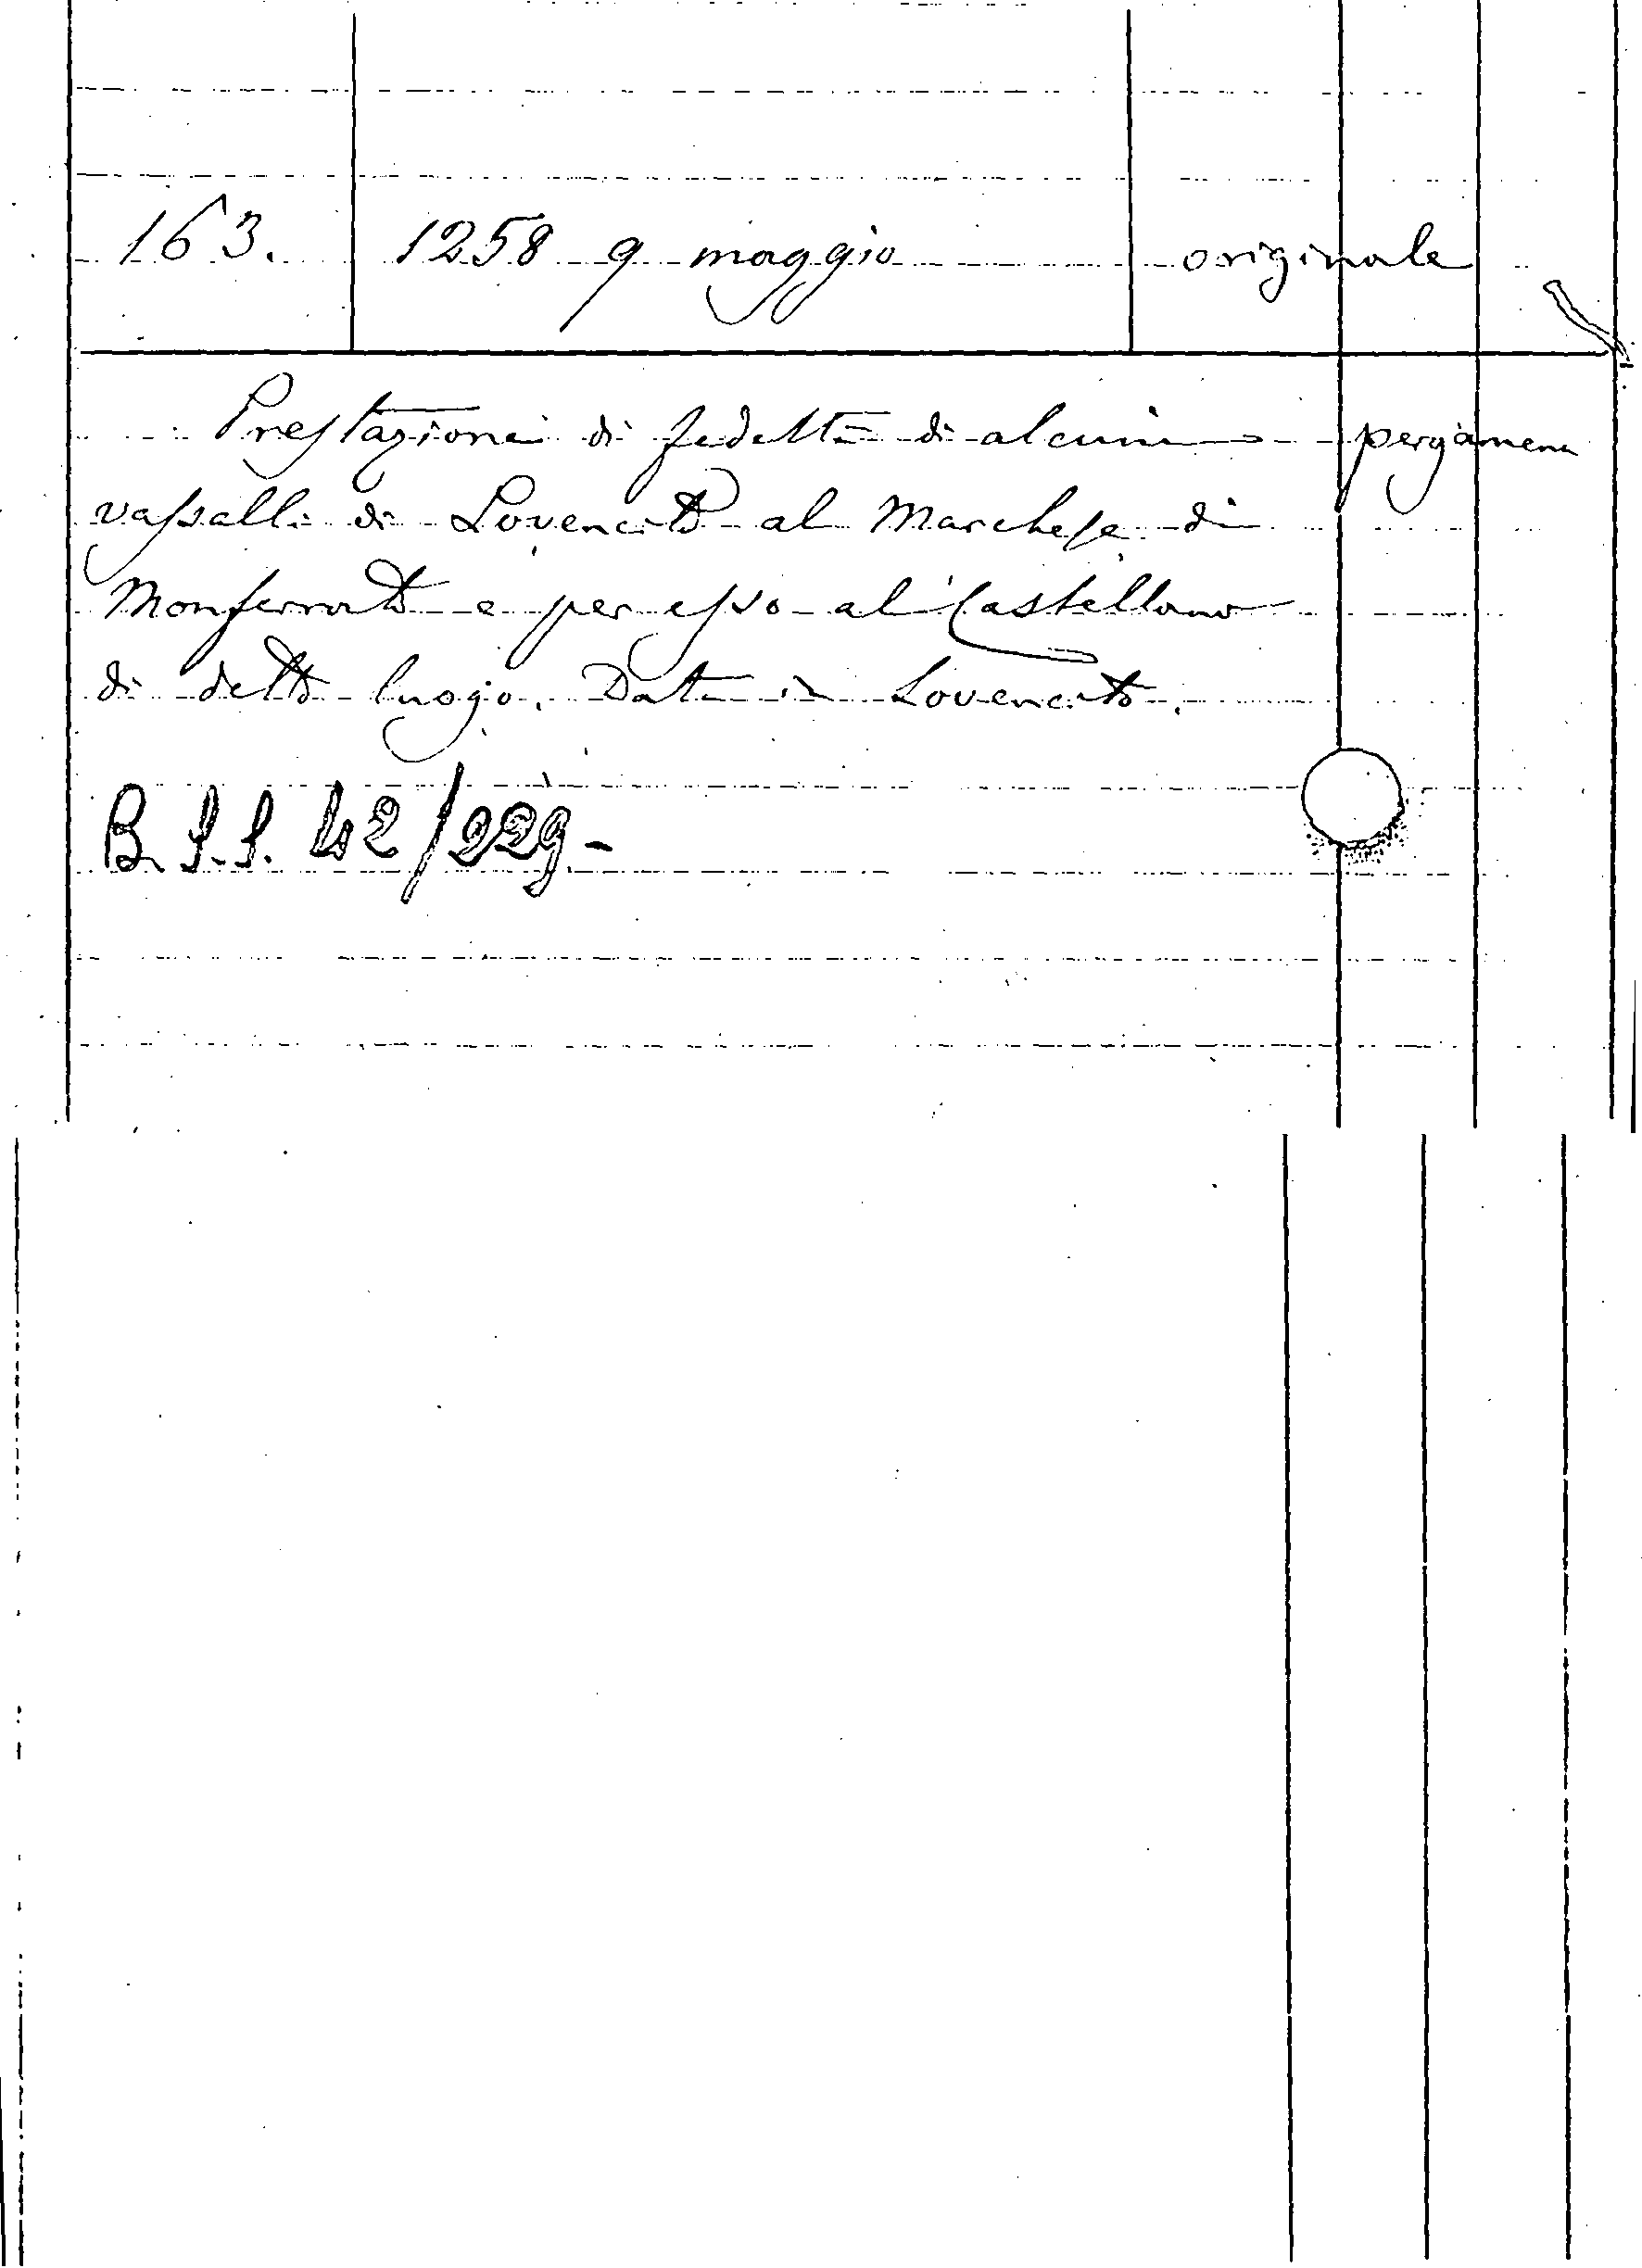 163. 1258 9 maggio originale
Prestazione di fedeltà di alcuni pergamena
vassalli di Lovencito al Marchese di
Monferrato e per esso al Castellano
di detto luogo. Data in Lovencito.
B. S. S. 42/229-